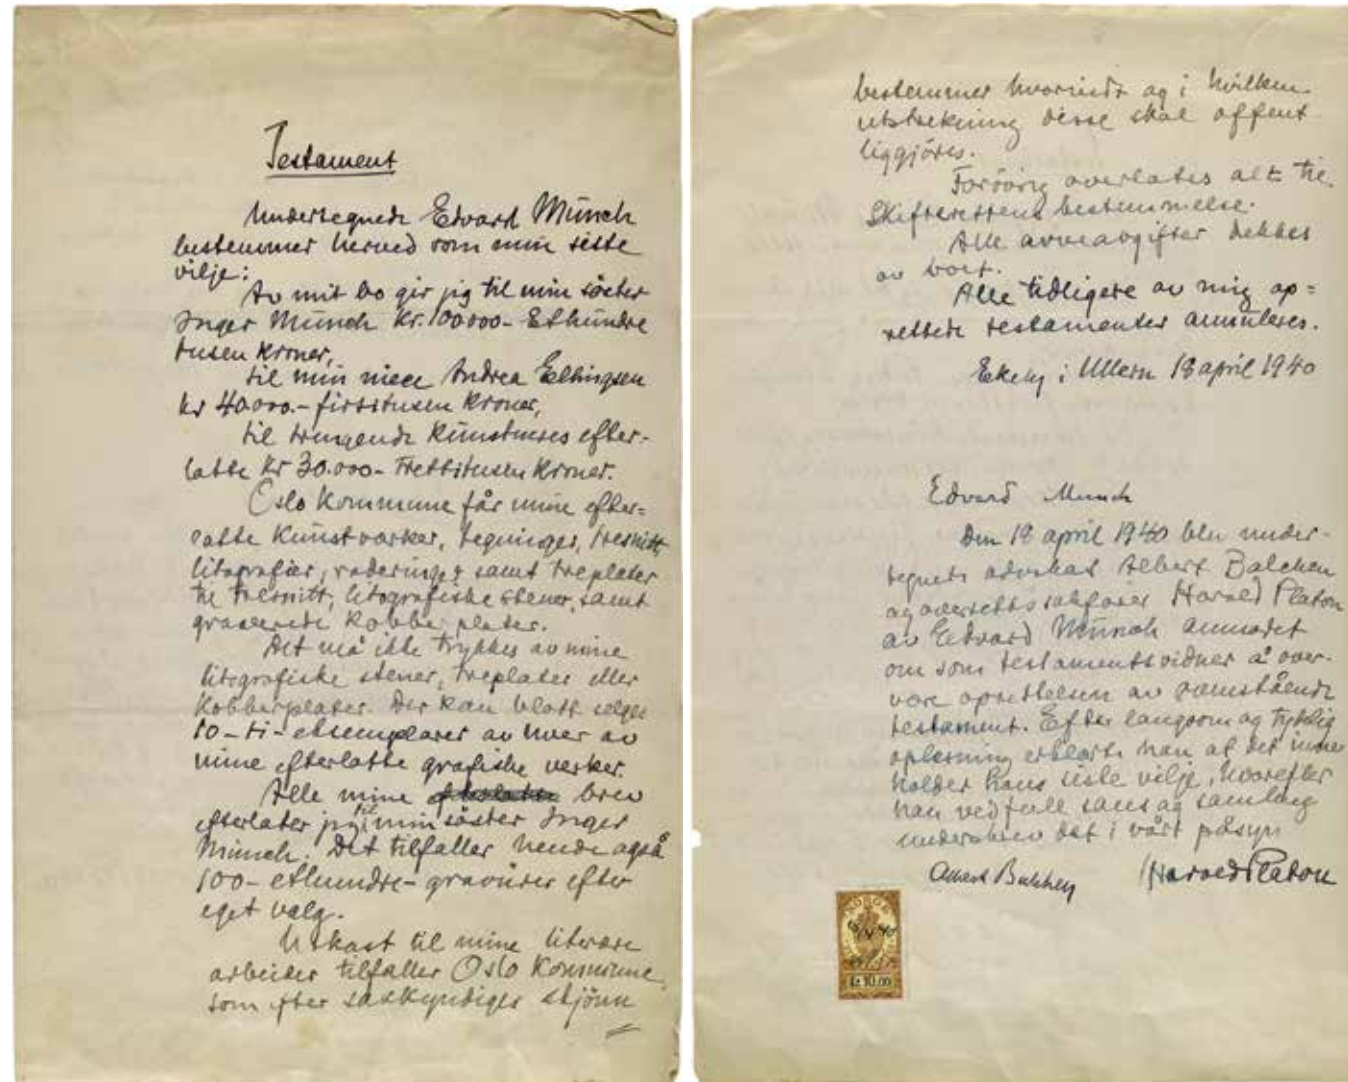 Testament
Undertegnede Edvard Munch
bestemmer herved som min siste
vilje:
Av mit bo gir jeg til min søster
Inger Munch Kr. 100000- Ethundre
tusen Kroner,
til min niece Andrea Ellingsen
kr 40000.- firtitusen Kroner,
til trængende Kunstneres efter-
latte Kr 30.000- Trettitusen Kroner.
Oslo Kommune får mine efter=
latte Kunstværker, tegninger, tresnitt
litografier, raderinger samt treplater
til tresnitt, litografiske stener, samt
graverede Kobberplater.
Det må ikke trykkes av mine
litografiske stener, treplater eller
Kobberplater. Der kan blott selges
10-ti-eksemplarer av hver av
mine efterlatte grafiske verker.
Alle mine brev
efterlater jeg til min søster Inger
Munch. Det tilfaller hende også
100- ethundre- gravurer efter
eget valg.
Utkast til mine literære
arbeider tilfaller Oslo Kommune,
som efter sakkyndiges skjønn
bestemmer hvorvidt og i hvilken
utstrekning disse skal offent
liggjöres.
Forövrig overlates alt til
Skifterettens bestemmelse.
Alle arveavgifter dekkes
av boet.
Alle tidligere av mig op=
rettede testamenter annuleres.
Ekely i Ullern 18 april 1940
Edvard Munch
Den 18 april 1940 blev under-
tegnete advokat Albert Balchen
og overrettssakfører Harald Platon
av Edvard Munch anmodet
om som testamentsvidner å over-
være oprettelsen av ramstående
testament. Efter langsom og tydelig
oplesning erklærte han at det inne
holder hans siste vilje, hvorefter
han ved full sans og samling
underskrev det i vårt påsyn
Albert Balchen Harald Platon
NORGE
Kr. 10.00